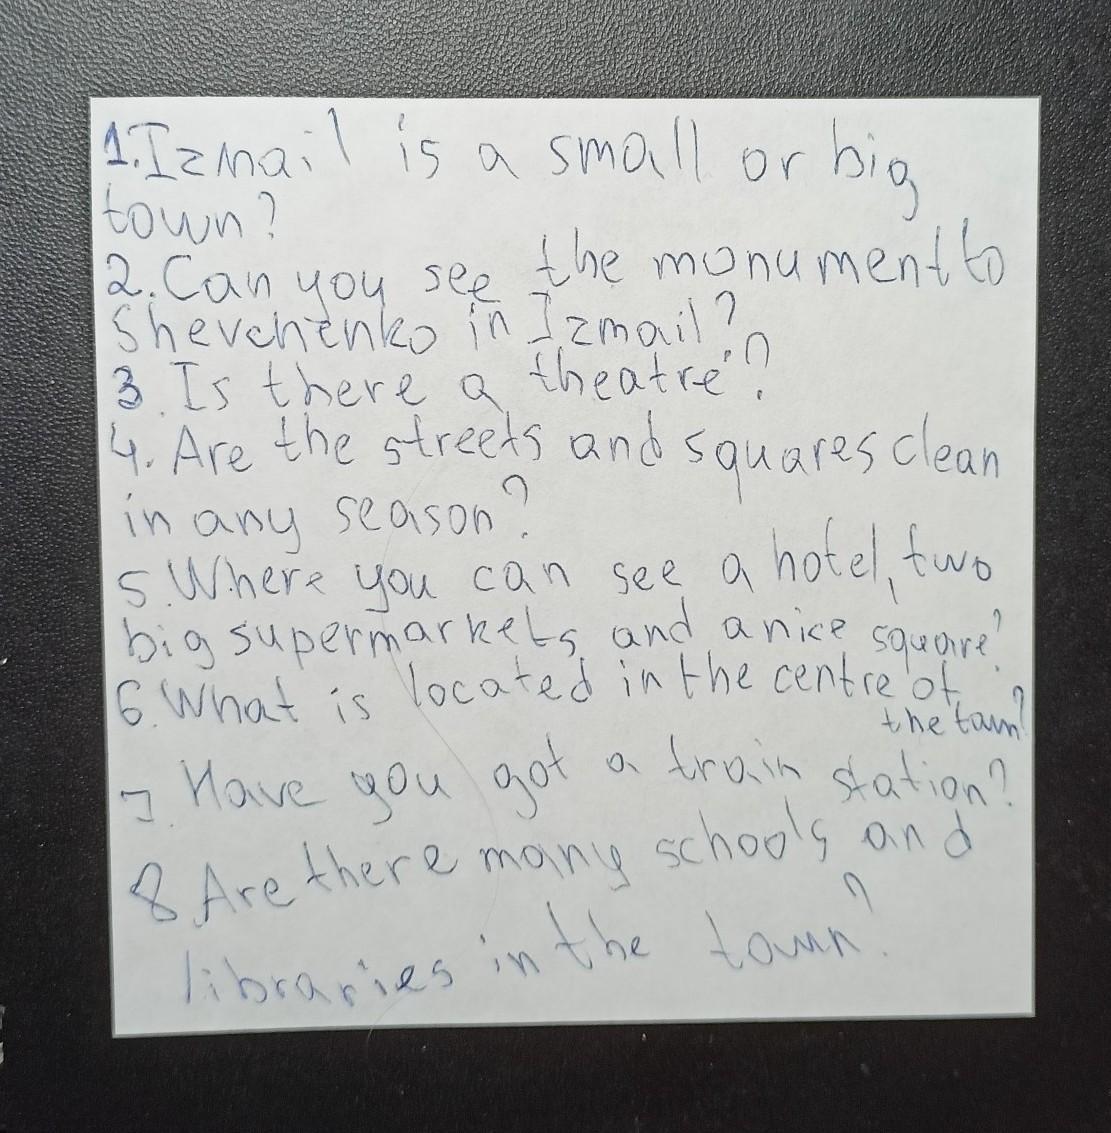 1. Izmail is a small or big
town?
2. Can you see the monument to
Shevchenko in Izmail?
3. Is there a theatre?
4. Are the streets and squares clean
in any season?
5. Where you can see a hotel, two
big supermarkets and a nice square?
6. What is located in the centre of
the town?
7. Have you got a train station?
8. Are there many schools and
libraries in the town?